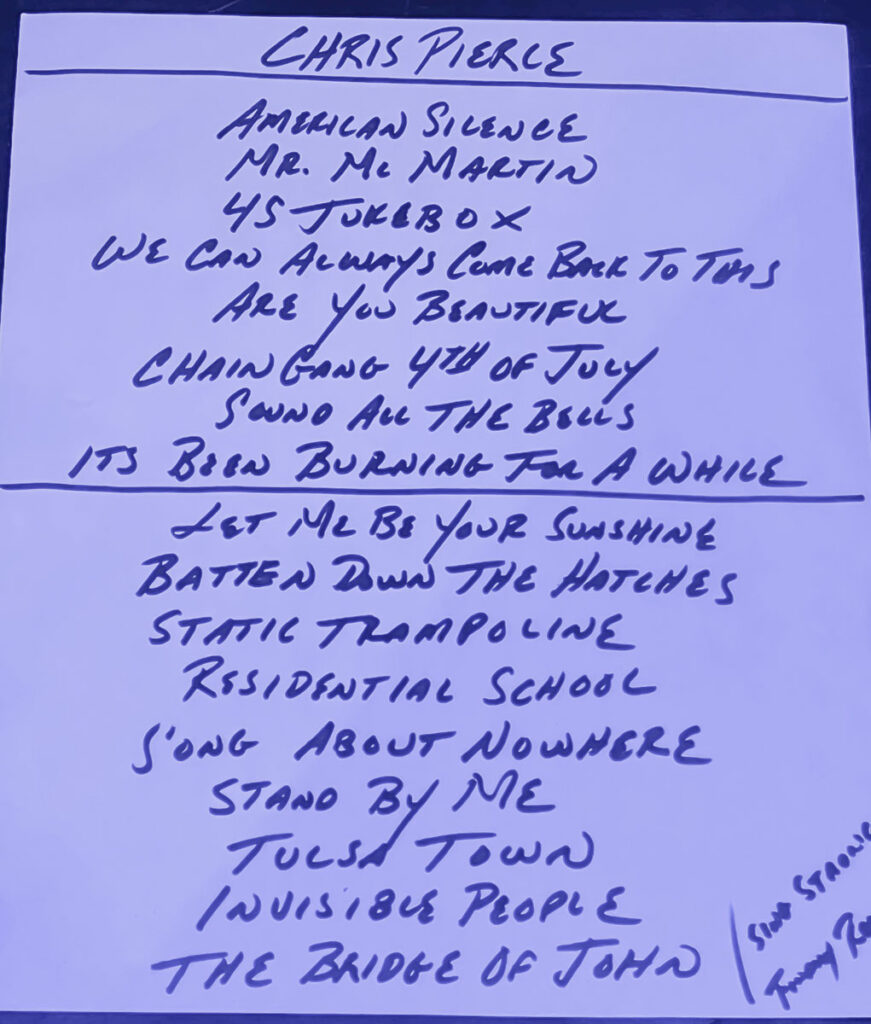 CHRIS PIERCE
AMERICAN SILENCE
MR. MC MARTIN
45 JUKEBOX
WE CAN ALWAYS COME BACK TO THIS
ARE YOU BEAUTIFUL
CHAIN GANG 4TH OF JULY
SOUND ALL THE BELLS
ITS BEEN BURNING FOR A WHILE
LET ME BE YOUR SUNSHINE
BATTEN DOWN THE HATCHES
STATIC TRAMPOLINE
RESIDENTIAL SCHOOL
SONG ABOUT NOWHERE
STAND BY ME
TULSA TOWN
INVISIBLE PEOPLE
THE BRIDGE OF JOHN
SING STRONG